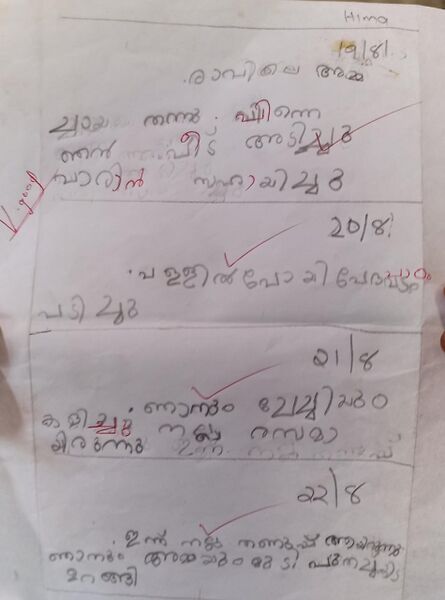 Hima
19/8/.
രാവിലെ അമ്മ
ചായ തന്നു. പിന്നെ
ഞൻ വീട് അടിച്ചു
വാരിൻ സഹായിച്ചു
V.good
20/8/
പള്ളിൽ പോയി വേദപാഠം
പടിച്ചു
21/8
ഞാനും ചേച്ചിയും
കളിച്ചു നല്ല രസമാ
യിരുന്നു
22/8
ഇന്ന് നല്ല തണുപ്പ് ആയിരുന്നു
ഞാനും അമ്മയും മൂടി പുതച്ചു
ഉറങ്ങി